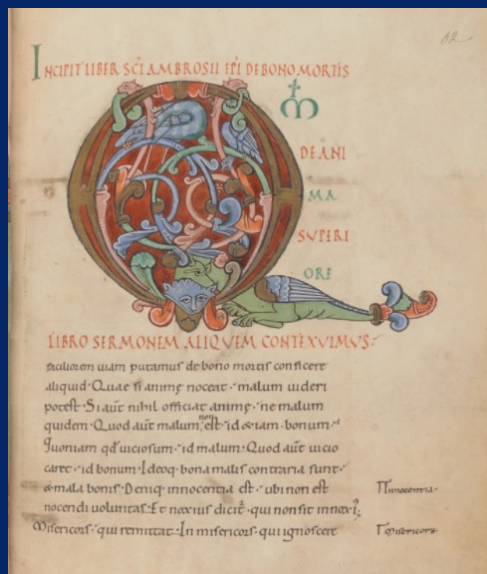 62
INCIPIT LIBER SCI AMBROSII EPI DE BONO MORTIS
QM
DE ANI
MA
SUPERI
ORE
LIBRO SERMONEM ALIQUEM CONTEXUIMUS
faciliorem uiam putamus de bono mortis conficere
aliquid. Quae si animę noceat. malum uideri
potest. Si aut nihil officiat animę. ne malum
quidem. Quod aut malum non est. id etiam bonum.
Quoniam qd uiciosum. id malum. Quod aut uicio
caret. id bonum. Ideoq. bona malis contraria sunt.
& mala bonis. Deniq. innocentia est. ubi non est
nocendi uoluntas. Et noxius dicit. qui non sit innoxi.
Misericors. qui remittat. In misericors. qui ignoscere
innocentia.
misericors